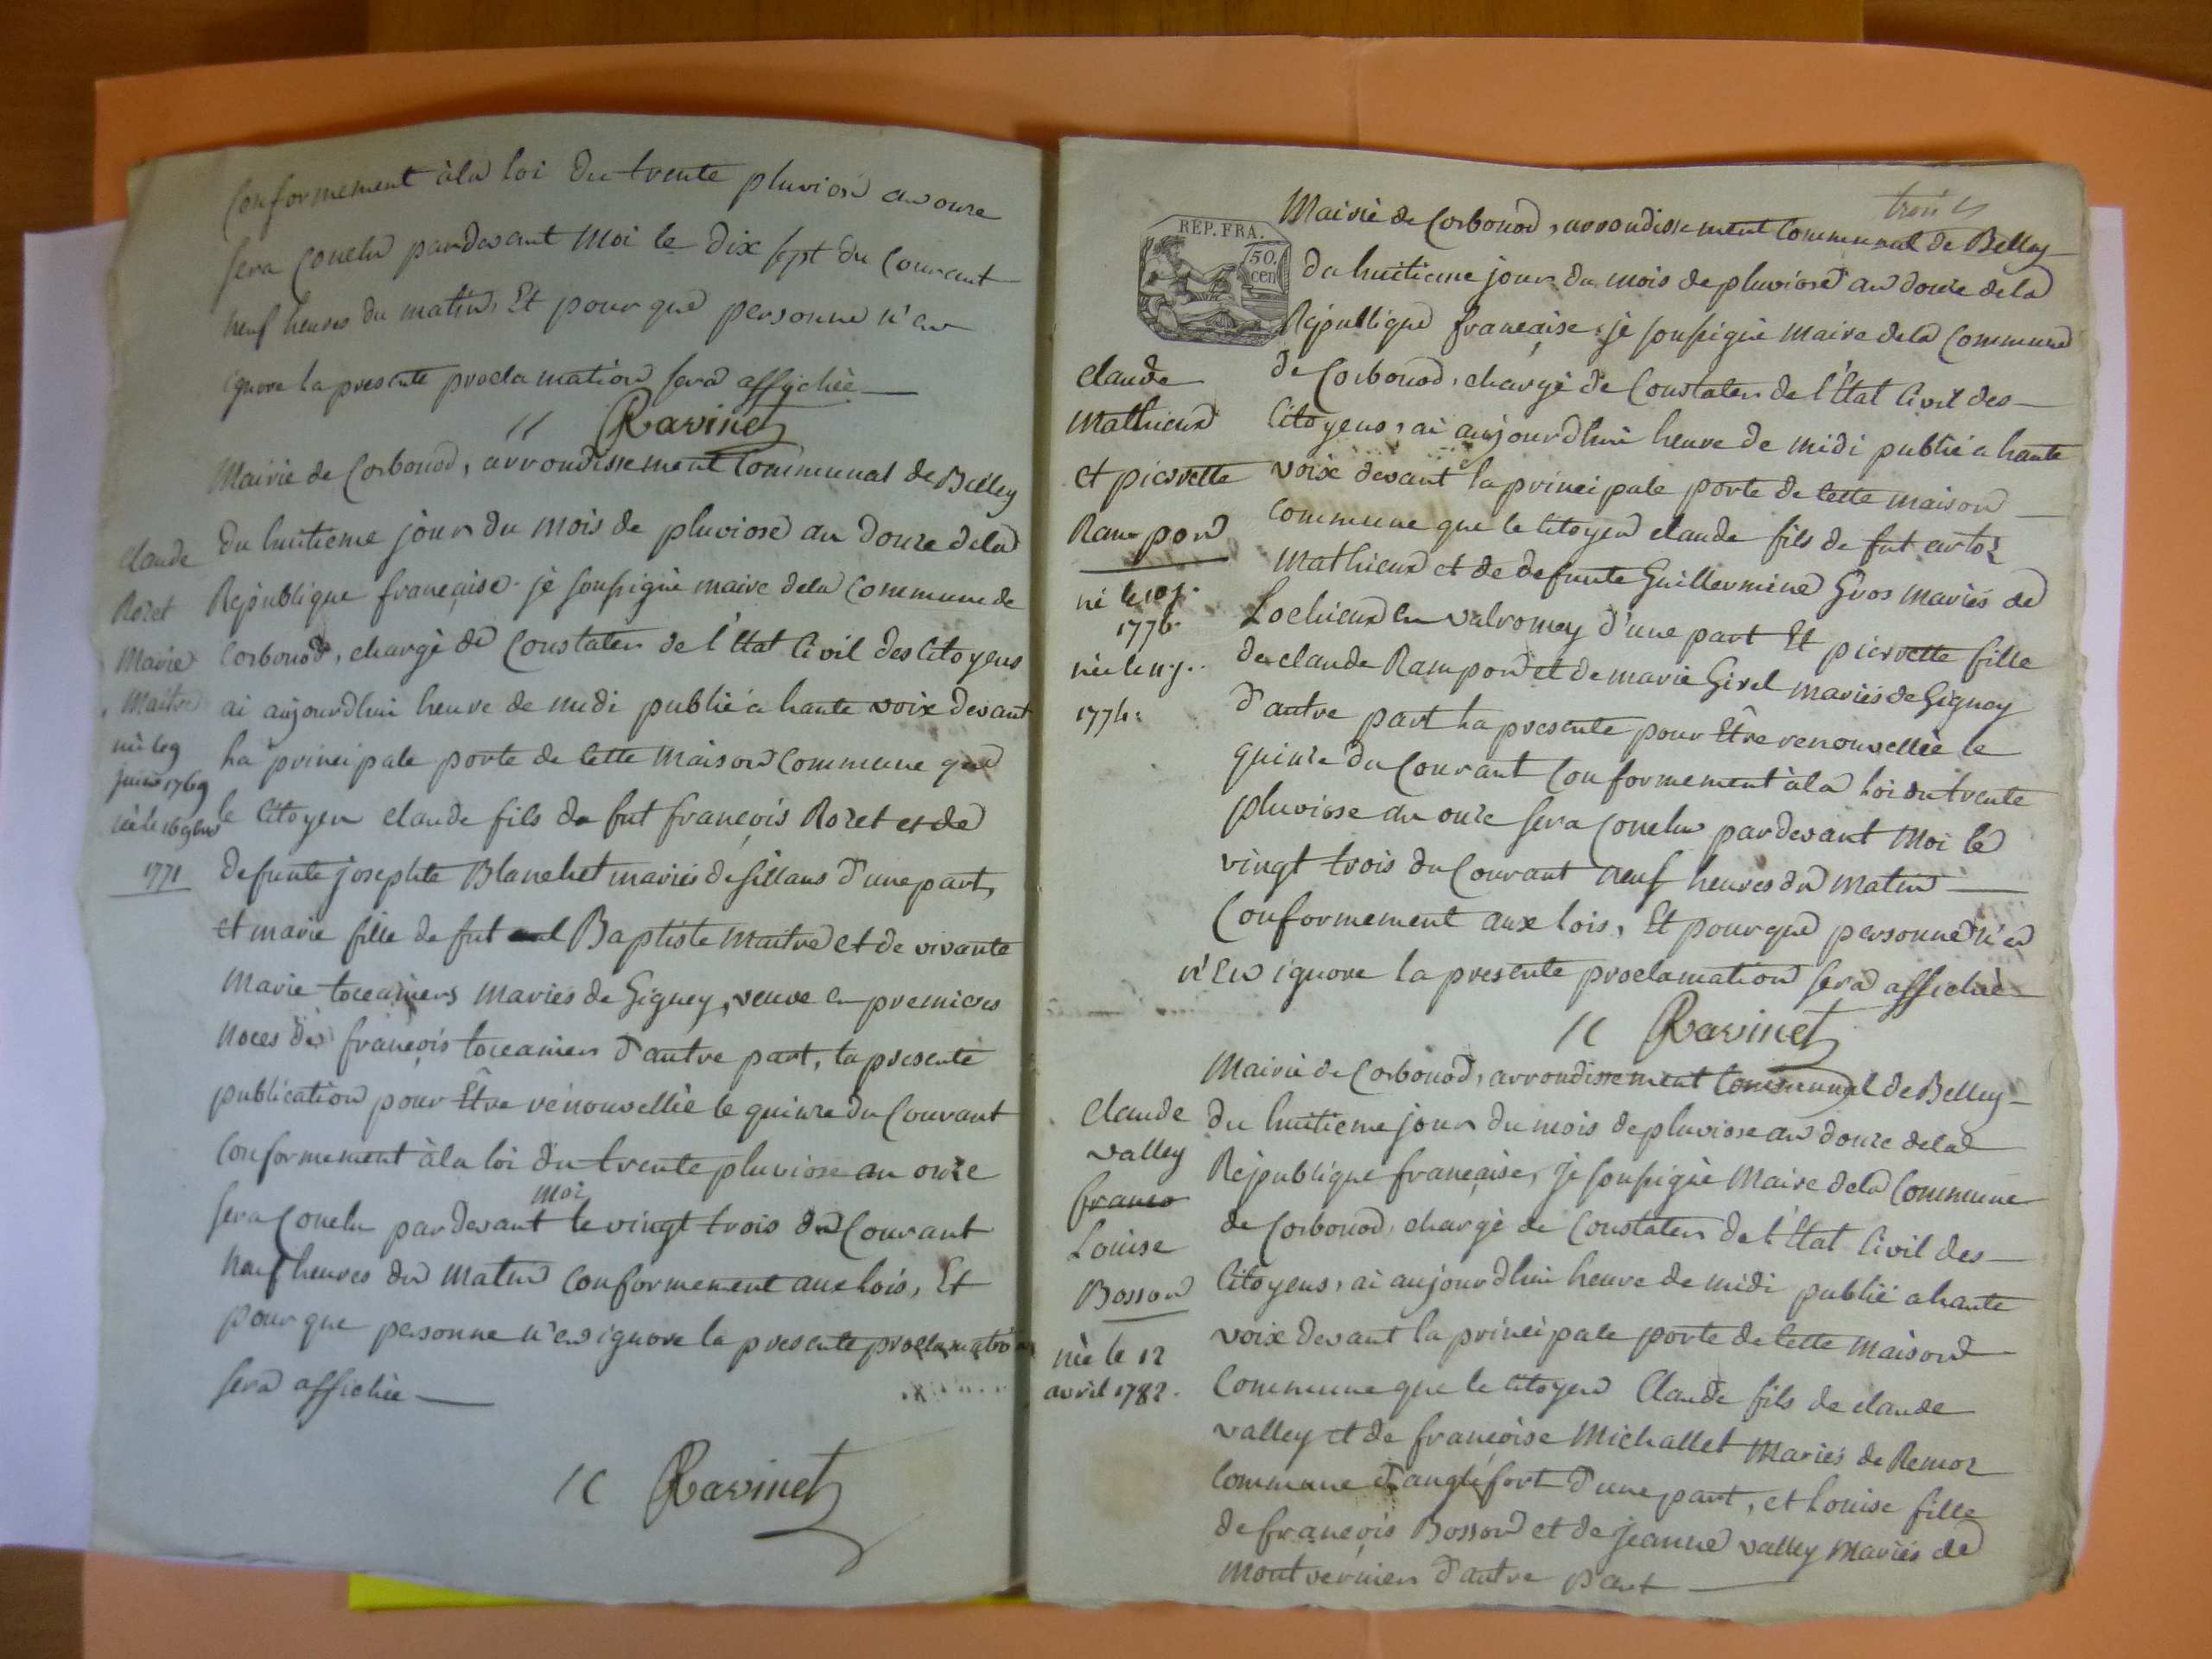 Conformement à la loi du trente pluviose an onze
sera conclu pardevant moi le dix sept du courant
neuf heures du matin, Et pour que personne n'en
ignore la presente proclamation sera affichée
Ravinet
Mairie de Corbonod, arrondissement Communal de Belley
du huitieme jour du mois de pluviose an douze de la
République française. je soussigné maire de la Commune de
Corbonod, chargé de constater de l'état Civil des Citoyens
ai aujourd'hui heure de midi publié a haute voix devant
la principale porte de cette maison Commune que
le Citoyen claude fils de fut françois Rozet et de
defunte josephte Blanchet mariés de sillans d'une part,
et marie fille de fut Baptiste Maitre et de vivante
Marie toccaniers mariés de Gigney, veuve en premieres
noces de françois toccanier d'autre part, la presente
publication pour Être renouvellée le quinze du Courant
Conformement à la loi du trente pluviose an onze
moi
sera Conclu par devant le vingt trois du Courant
neuf heures du matin conformement aux lois, Et
pour que personne n'en ignore la presente proclamation
sera affichée
Ravinet
claude
Rozet
Marie
Maitre
né le 9
juin 1769
née le 16 9bre
1771
trois
REP. FRA.
50.
cen
Mairie de Corbonod, arrondissement Communal de Belley
du huitieme jour du mois de pluviose an douze de la
République française. je soussigné maire de la Commune
de Corbonod, chargé de Constater de l'État Civil des
Citoyens, ai aujourd'hui heure de midi publié a haute
voix devant la principale porte de cette maison
Commune que le Citoyen claude fils de fut
Mathieux et de defunte Guillermine Gros mariés de
Lochieux en valromey d'une part Et pierrette fille
de claude Rampon et de marie Girel mariés de Gigney
d'autre part la presente pour Être renouvellée le
quinze du Courant Conformement à la loi du trente
pluviose an onze sera Conclu pardevant moi le
vingt trois du Courant neuf heures du matin
Conformement aux lois, Et pour que personne n'en
n'en ignore la presente proclamation sera affichée
Ravinet
claude
Mathieux
et pierrette
Rampon
né le
1776
née le
1774
Mairie de Corbonod, arrondissement Communal de Belley
du huitieme jour du mois de pluviose an douze de la
République française, je soussigné Maire de la Commune
de Corbonod, chargé de Constater de l'État Civil des
Citoyens, ai aujourd'hui heure de midi publié a haute
voix devant la principale porte de cette maison
Commune que le Citoyen Claude fils de claude
valley et de françoise Michallet Mariés de Remoz
Commune d'anglefort d'une part, et Louise fille
de françois Bosson et de jeanne valley mariés de
montvernier d'autre part
Claude
valley
Louise
Bosson
née le 12
avril 1782.